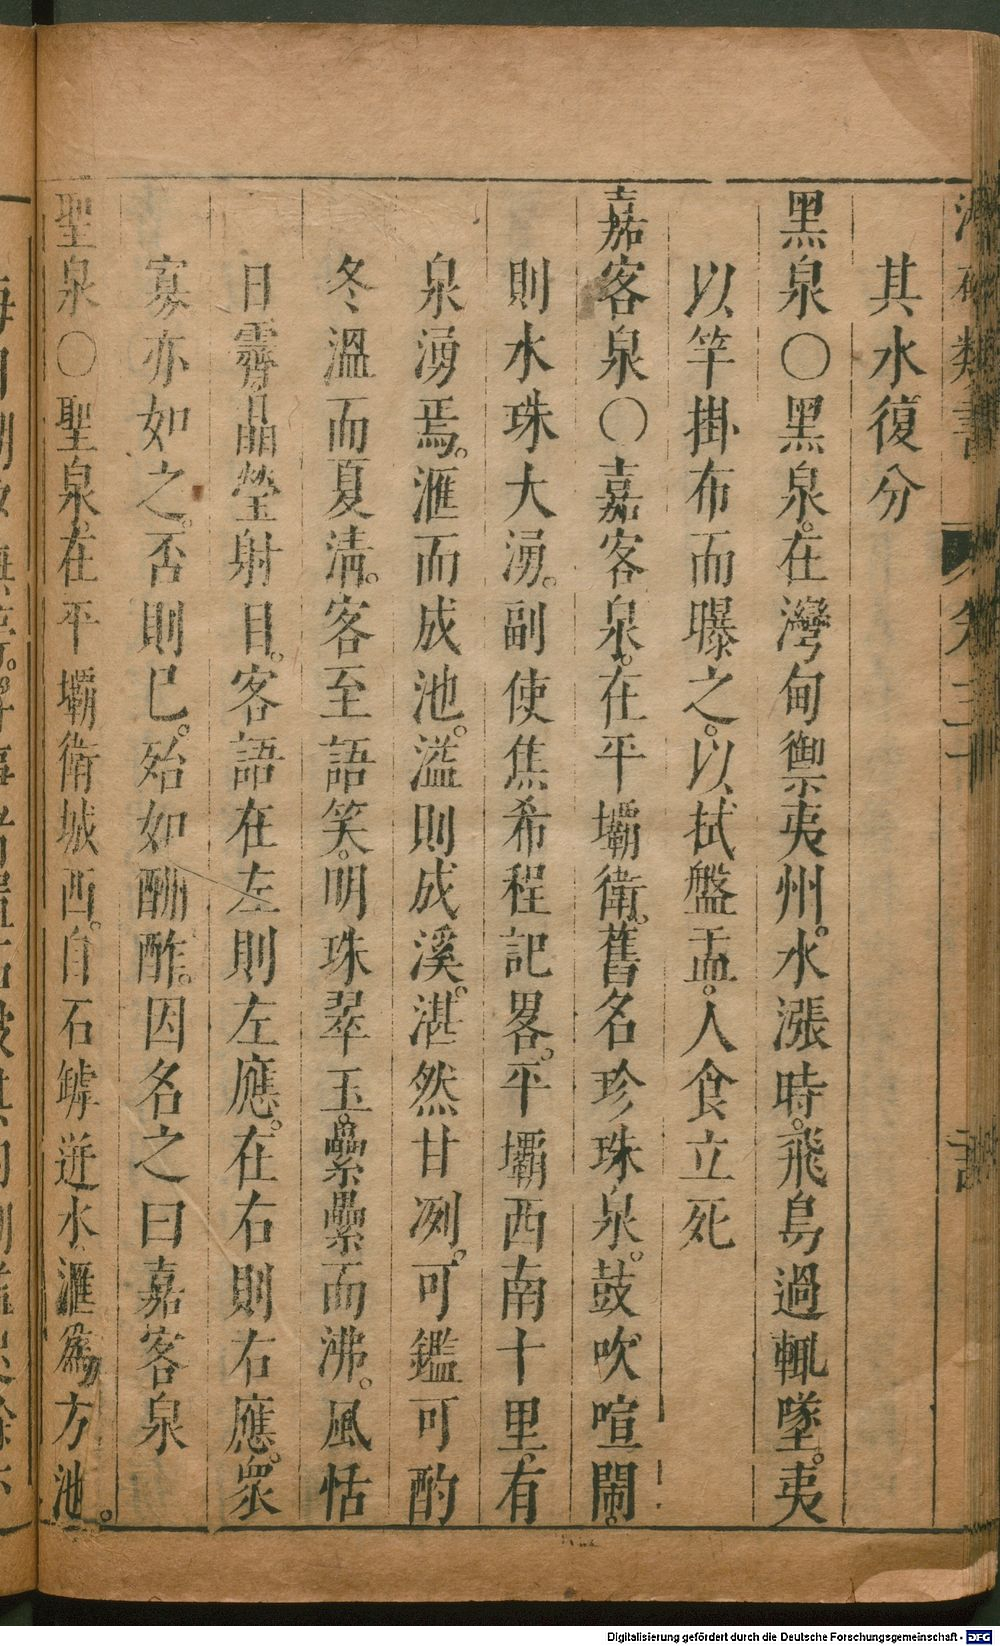 其水復分
黑泉○黑泉。在灣甸禦夷州。水漲時。飛鳥過輒墜。夷
以竿掛布而曝之。以拭盤盂。人食立死
嘉客泉○嘉客泉。在平壩衛。舊名珍珠泉。鼓吹喧鬧。
則水珠大湧。副使焦希程記畧。平壩西南十里。有
泉湧焉。滙而成池。溢則成溪。湛然甘冽。可鑑可酌
冬溫而夏清。客至語笑。明珠翠玉。纍纍而沸。風恬
日霽。晶瑩射目。客語在左則左應。在右則右應。衆
寡亦如之。否則已。殆如酬酢。因名之曰嘉客泉
聖泉○聖泉。在平壩衛城西。自石罅迸水。滙爲方池。
Digitalisierung gefördert durch die Deutsche Forschungsgemeinschaft - DFG